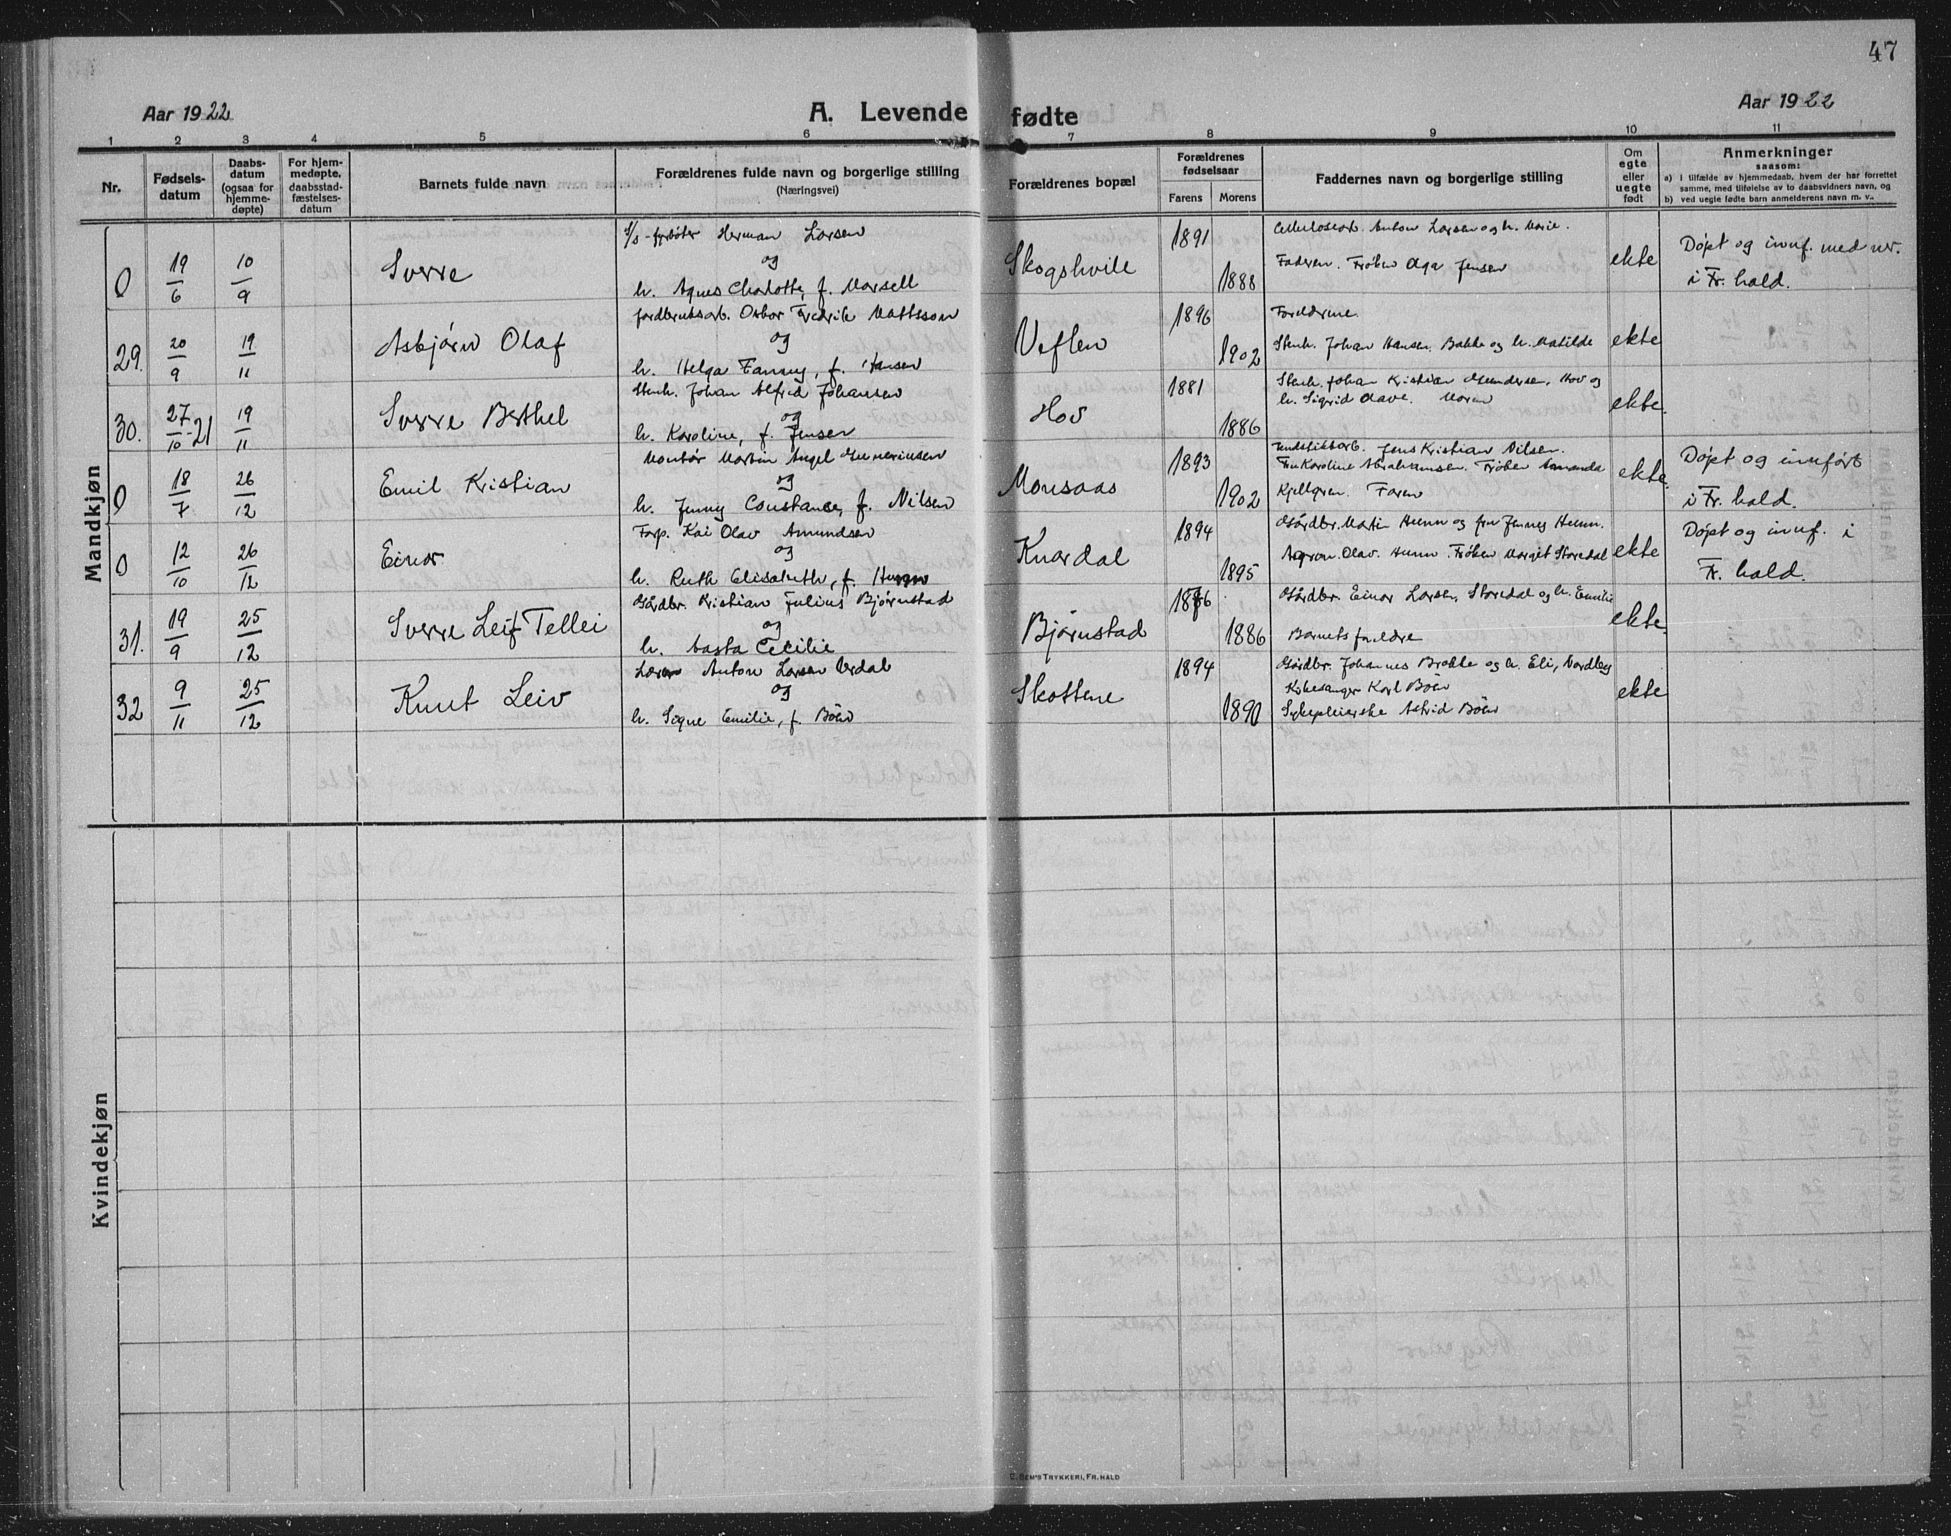 47
Aar 1922
A. Levende fødte
Aar 1922
1 2 3 4 5 6 7 8 9 10 11
Nr.
Fødsels-
datum
Daabs-
datum
(ogsaa for
hjemme-
døpte)
For hjem-
medøpte,
daabsstad-
fæstelses-
datum
Barnets fulde navn
Forældrenes fulde navn og borgerlige stilling
(Næringsvei)
Forældrenes bopæl
Forældrenes
fødselsaar
Farens Morens
Faddernes navn og borgerlige stilling
Om
egte
eller
uegte
født
Anmerkninger
saasom:
a) i tilfælde av hjemmedaab, hvem der har forrettet
samme, med tilføielse av to daabsvidners navn, og
b) ved uegte fødte barn anmelderens navn m. v.
Mandkjøn
0 19/6 10/9 Sverre
S/s-fyrbøter Herman Larsen
og
h. Agnes Charlotte, f. Marsell
Skogshvile 1891 1888
Cellulosearb. Anton Larsen og h. Marie.
Faderen. Frøken Olga Jensen
ekte
Døpt og innf. med nr.
i Fr. hald.
29. 20/9 19/11 Asbjørn Olaf
Jordbruksarb. Oskar Fredrik Mattsson
og
h. Helga Fanny, f. Hansen
Veflen 1896 1902
Foreldrene
Stenh. Johan Hansen, Bakke og h. Matilde
ekte
30. 27/10-21 19/11 Sverre Berthel
Stenh. Johan Alfred Johansen
og
h. Karoline, f. Jensen
Hov 1881 1886
Stenh. Johan Kristian Gundersen, Hov og
h. Sigrid Aave. Moren
ekte.
0 18/7 26/12 Emil Kristian
Montør Martin Angel Gunerinsen
og
h. Jenny Constance, f. Nilsen
Monsaas 1893 1902
Fendstikkarb. Jens Kristian Nilsen.
Fru Karoline Abrahamsen. Frøken Amanda
Kjellgren. Faren
ekte.
Døpt og innført
i Fr. hald.
0 12/10 26/12 Einar
Forp. Kai Olav Amundsen
og
h. Ruth Elisabeth, f. Hunn
Knardal 1894 1895
Gårdbr. Martin Hunn og fru Jenny Hunn.
Agron. Olav Hunn. Frøken Margit Storedal
ekte
Døpt og innf. i
Fr. hald.
31. 19/9 25/12 Sverre Leif Tellei
Gårdbr. Kristian Julius Bjørnstad
og
h. Aasta Cecilie
Bjørnstad 1876 1886
Gårdbr. Einar Larsen, Storedal og h. Emilie
Barnets foreldre
ekte.
32 9/11 25/12 Knut Leiv
Lærer Anton Larsen Verdal
og
h. Signe Emilie, f. Bøen
Skottene 1894 1890
Gårdbr. Johannes Brekke og h. Eli, Nordby
Kirkesanger Karl Bøen
Sykepleierske Astrid Bøen
ekte
Kvindekjøn
C. Bem's Trykkeri, Fr.hald